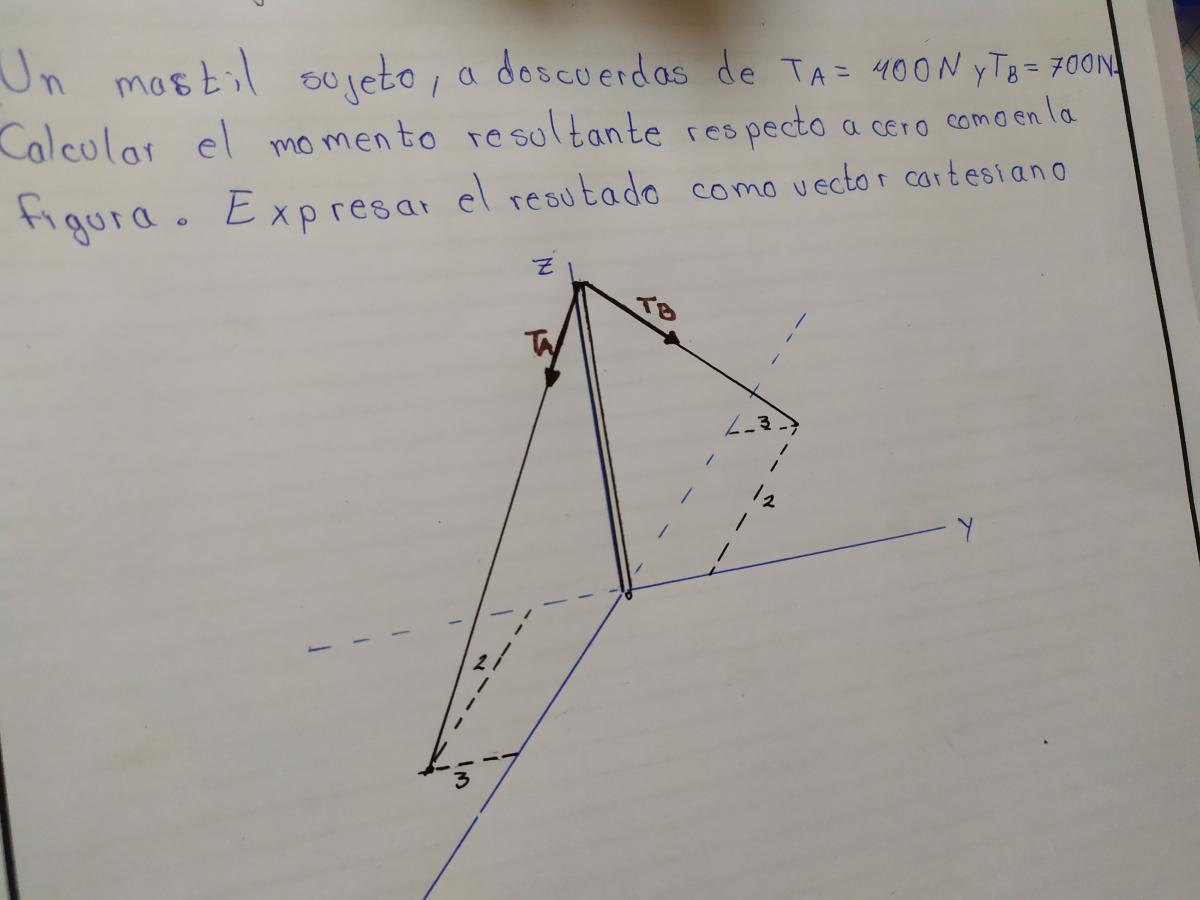 Un mastil sujeto, a doscuerdas de TA= 400N y TB= 700N.
Calcular el momento resultante respecto a cero como en la
figura. Expresar el resutado como vector cartesiano
Z
TA
TB
3
2
Y
0
2
3